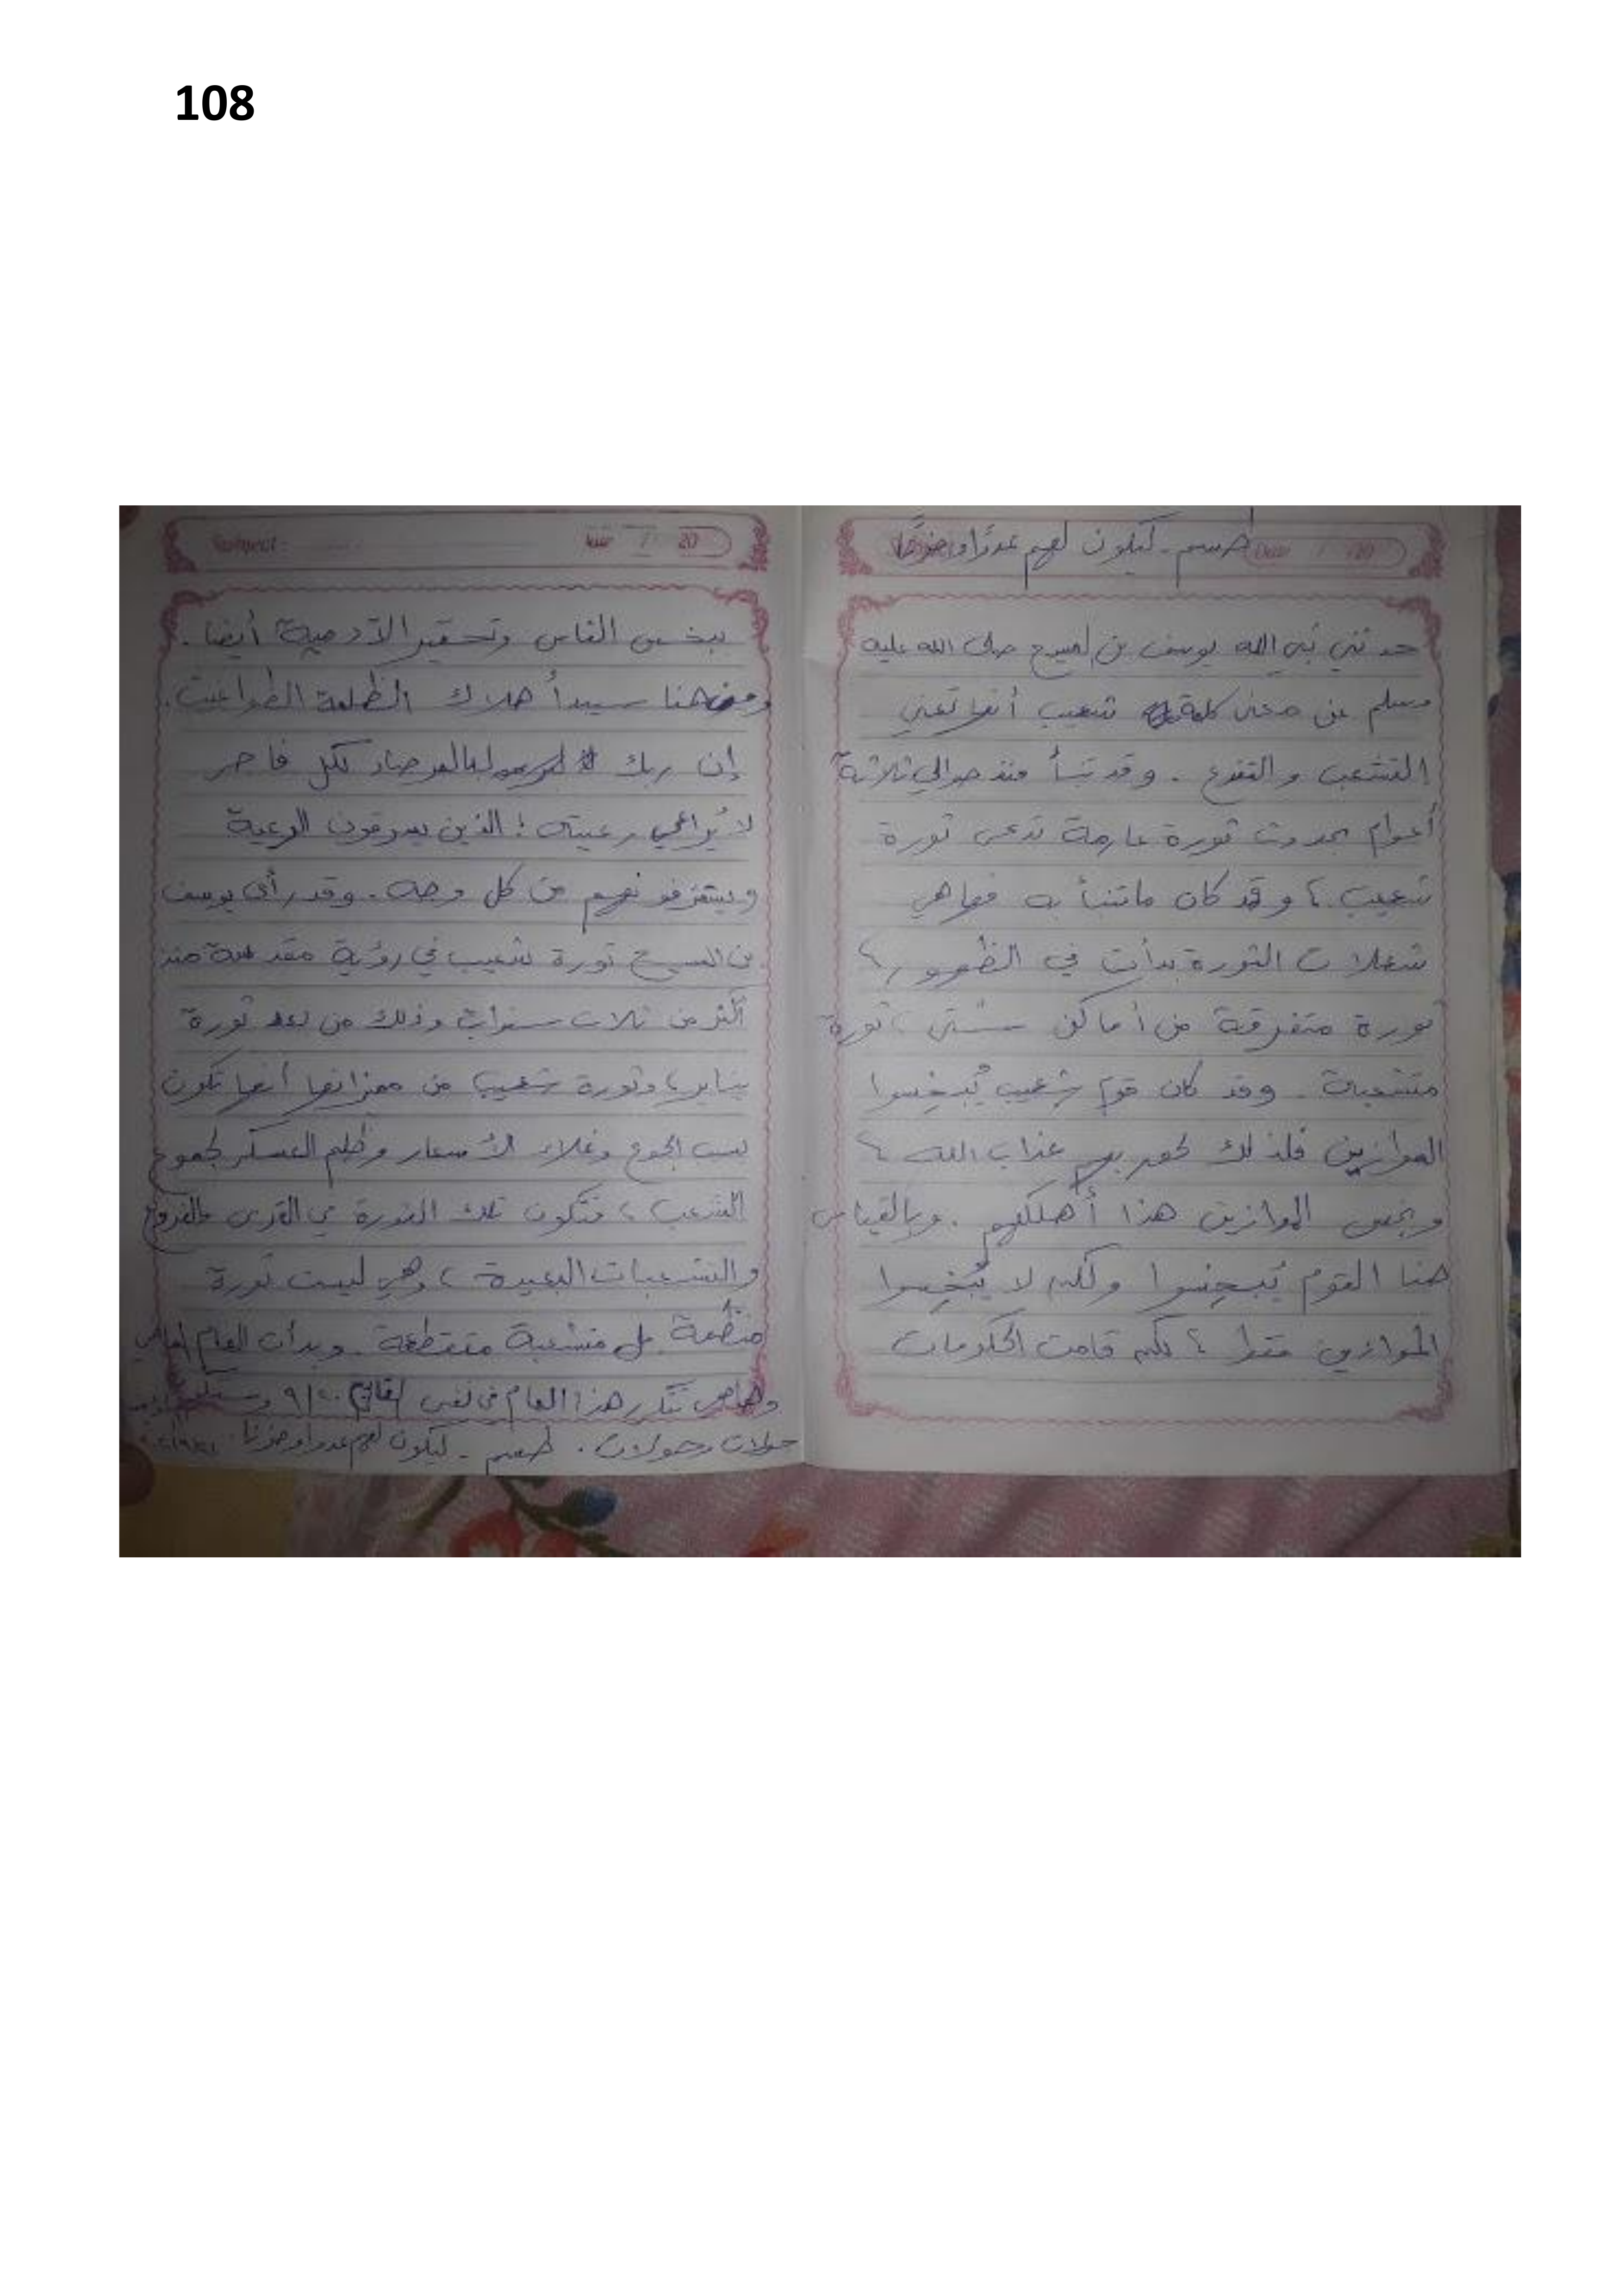 108
طسم - ليكون لهم عدوًا وحزنًا
حدثني نبي الله يوسف بن المسيح صلى الله عليه
وسلم عن معنى كلمة شعيب أنها تعني
التشعب والتفرع . وقد تنبأ منذ حوالي ثلاثة
أعوام بحدوث ثورة عارمة تدعى ثورة
شعيب ، وقد كان ما تنبأ به فها هي
شعلات الثورة بدأت في الظهور ،
ثورة متفرقة من أماكن شتى ، ثورة
متشعبة . وقد كان قوم شعيب يُبخِسوا
الموازين فلذلك لحق بهم عذاب الله ،
وبخس الموازين هذا أهلكهم . وبالقياس
هنا القوم يُبخِسوا ولكن لا يُبخِسوا
الموازين فقط ، لكن قامت الحكومات
ببخس الناس وتحقير الآدمية أيضا .
ومن هنا سيبدأ هلاك الظلمة الطواغيت .
إن ربك لبالمرصاد لكل فاجر
لا يُراعي رعيته ؛ الذين يسرقون الرعية
ويستنزفونهم من كل وجه . وقد رأى يوسف
بن المسيح ثورة شعيب في رؤية مقدسة منذ
أكثر من ثلاث سنوات وذلك من بعد ثورة
يناير ، وثورة شعيب من مميزاتها أنها تكون
بسبب الجوع وغلاء الأسعار وظلم العسكر لجموع
الشعب ، فتكون تلك الثورة في القرى والفروع
والتشعبات البعيدة ، وهي ليست ثورة
منظَّمة بل متشعبة متقطعة . وبدأت العام الماضي
وها هي تتكرر هذا العام في نفس التاريخ ٩/٢٠
جولات وجولات . طسم - ليكون لهم عدوا وحزنا .